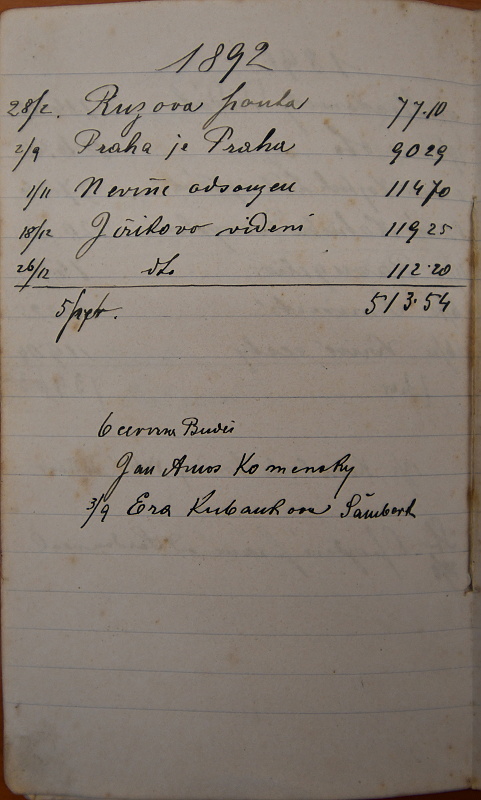 1892
28/2. Ruzova pouta 77.10
2/9 Praha je Praha 90 29
1/11 Nevine odsouzen 114 70
18/12 Jiřikovo viděni 119 25
26/12 dto 112.20
513.54
6 cervna Budeč
Jan Amos Komensky
3/9 Era Kubankova Šamberk